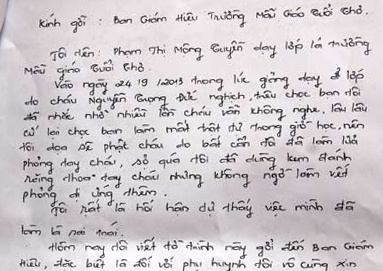 Kính gởi : Ban Giám Hiệu Trường Mẫu Giáo Tuổi Thơ.
Tôi tên : Phạm Thị Mộng Tuyền dạy lớp lá trường
Mẫu giáo Tuổi Thơ.
Vào ngày 24/9/2013 trong lúc giảng dạy ở lớp
do cháu Nguyễn Trọng Đức nghịch, trêu chọc bạn tôi
đã nhắc nhở nhiều lần cháu vẫn không nghe, lâu lâu
cứ lại chọc bạn làm mất trật tự trong giờ học, nên
tôi dọa sẽ phạt cháu do bất cẩn tôi đã làm lửa
phỏng tay cháu, sợ quá tôi đã dùng kem đánh
răng thoa tay cháu nhưng không ngờ làm vết
phỏng dị ứng thêm.
Tôi rất là hối hận tự thấy việc mình đã
làm là sai trái.
Hôm nay tôi viết tờ trình này gởi đến Ban Giám
Hiệu, đặc biệt là đối với phụ huynh tôi vô cùng xin